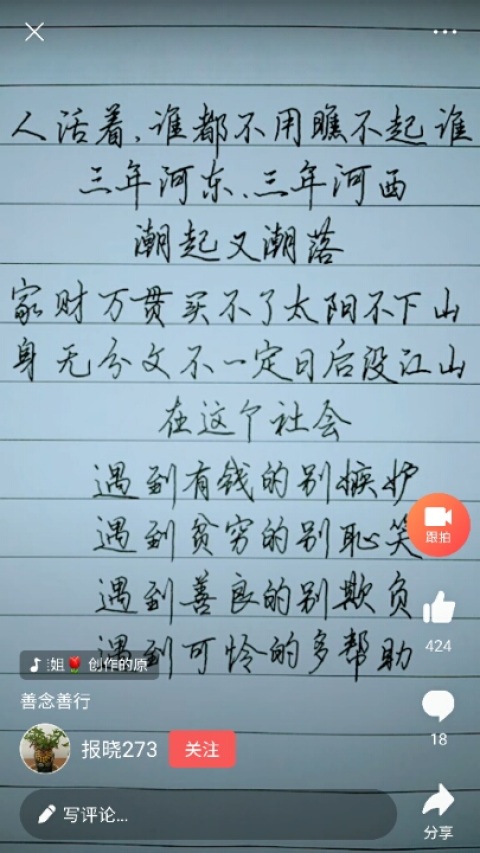 人活着,谁都不用瞧不起谁
三年河东、三年河西
潮起又潮落
家财万贯买不了太阳不下山
身无分文不一定日后没江山
在这个社会
遇到有钱的别嫉妒
遇到贫穷的别耻笑
跟拍
遇到善良的别欺负
424
遇到可怜的多帮助
姐🌹 创作的原
善念善行
18
报晓273
关注
写评论...
分享